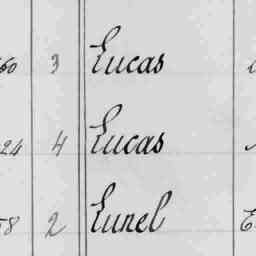 60 3 Lucas
24 4 Lucas
8 2 Lunel E